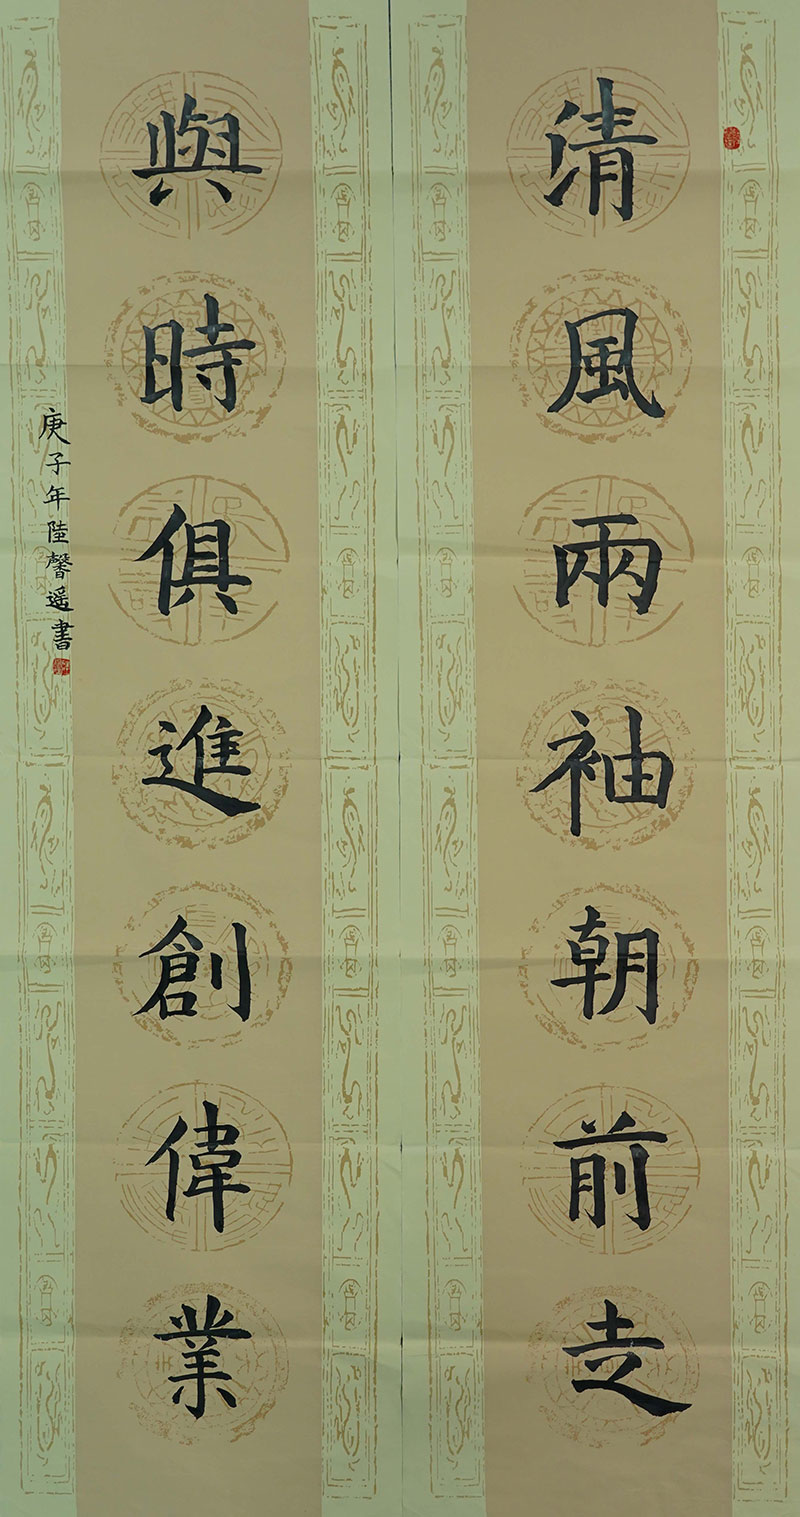 清風兩袖朝前走
與時俱進創偉業
庚子年陸馨遥書